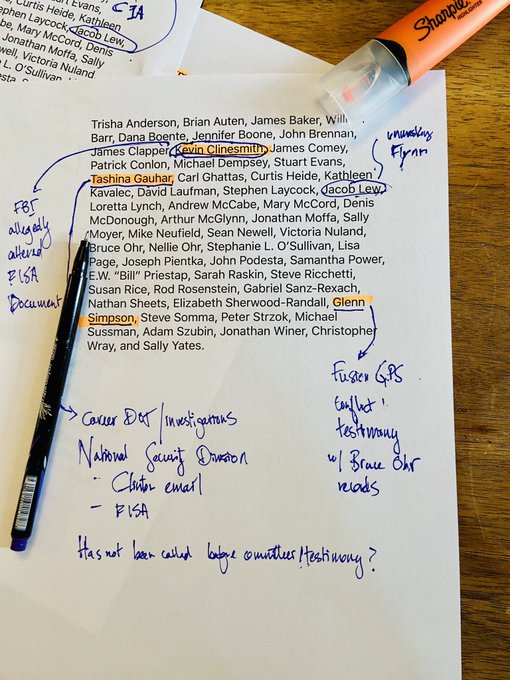 Curtis Heide, Kathleen
Stephen Laycock, Jacob Lew,
Mary McCord, Denis
Jonathan Moffa, Sally
Victoria Nuland
L. O'Sullivan,
IA
Sharpie
HIGHLIGHTER
Trisha Anderson, Brian Auten, James Baker,
Barr, Dana Boente, Jennifer Boone, John Brennan,
James Clapper, Kevin Clinesmith, James Comey,
Patrick Conlon, Michael Dempsey, Stuart Evans,
Tashina Gauhar, Carl Ghattas, Curtis Heide, Kathleen
Kavalec, David Laufman, Stephen Laycock, Jacob Lew,
Loretta Lynch, Andrew McCabe, Mary McCord, Denis
McDonough, Arthur McGlynn, Jonathan Moffa, Sally
Moyer, Mike Neufield, Sean Newell, Victoria Nuland,
Bruce Ohr, Nellie Ohr, Stephanie L. O'Sullivan, Lisa
Page, Joseph Pientka, John Podesta, Samantha Power,
E.W. "Bill" Priestap, Sarah Raskin, Steve Ricchetti,
Susan Rice, Rod Rosenstein, Gabriel Sanz-Rexach,
Nathan Sheets, Elizabeth Sherwood-Randall, Glenn
Simpson, Steve Somma, Peter Strzok, Michael
Sussman, Adam Szubin, Jonathan Winer, Christopher
Wray, and Sally Yates.
unmasking
Flynn
FBI
allegedly
altered
FISA
Document
Fusion GPS
conflict
testimony
w/ Bruce Ohr
records
Career DOJ/investigations
National Security Division
- Clinton email
- FISA
Has not been called before committee/testimony?